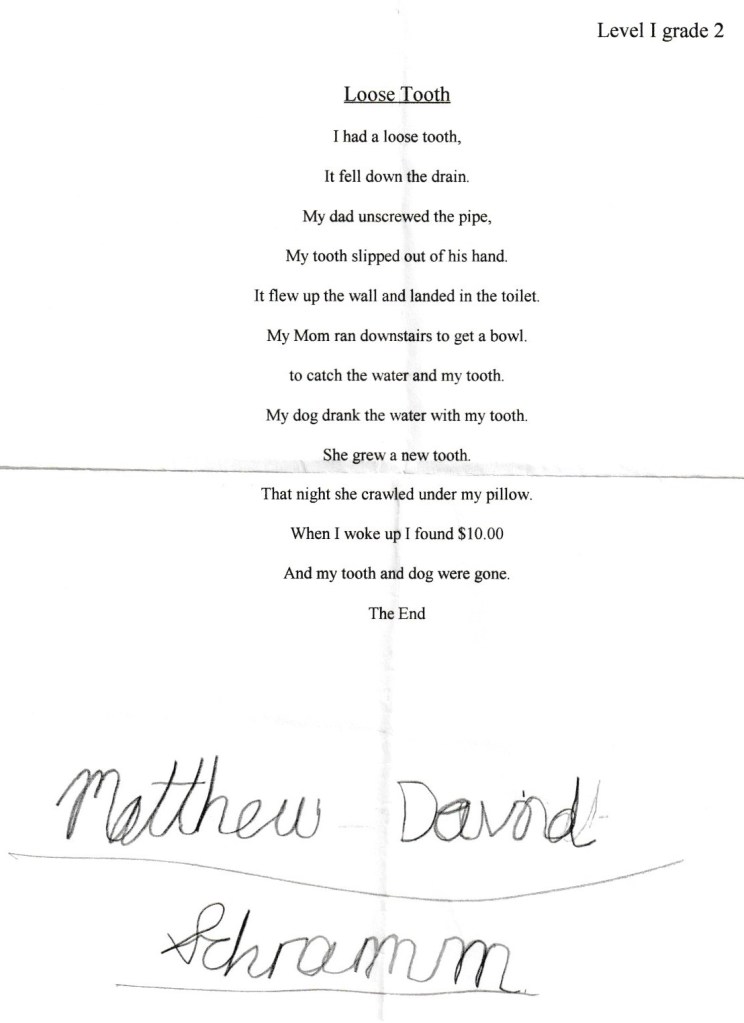 Level I grade 2
Loose Tooth
I had a loose tooth,
It fell down the drain.
My dad unscrewed the pipe,
My tooth slipped out of his hand.
It flew up the wall and landed in the toilet.
My Mom ran downstairs to get a bowl.
to catch the water and my tooth.
My dog drank the water with my tooth.
She grew a new tooth.
That night she crawled under my pillow.
When I woke up I found $10.00
And my tooth and dog were gone.
The End
Matthew David
Schramm